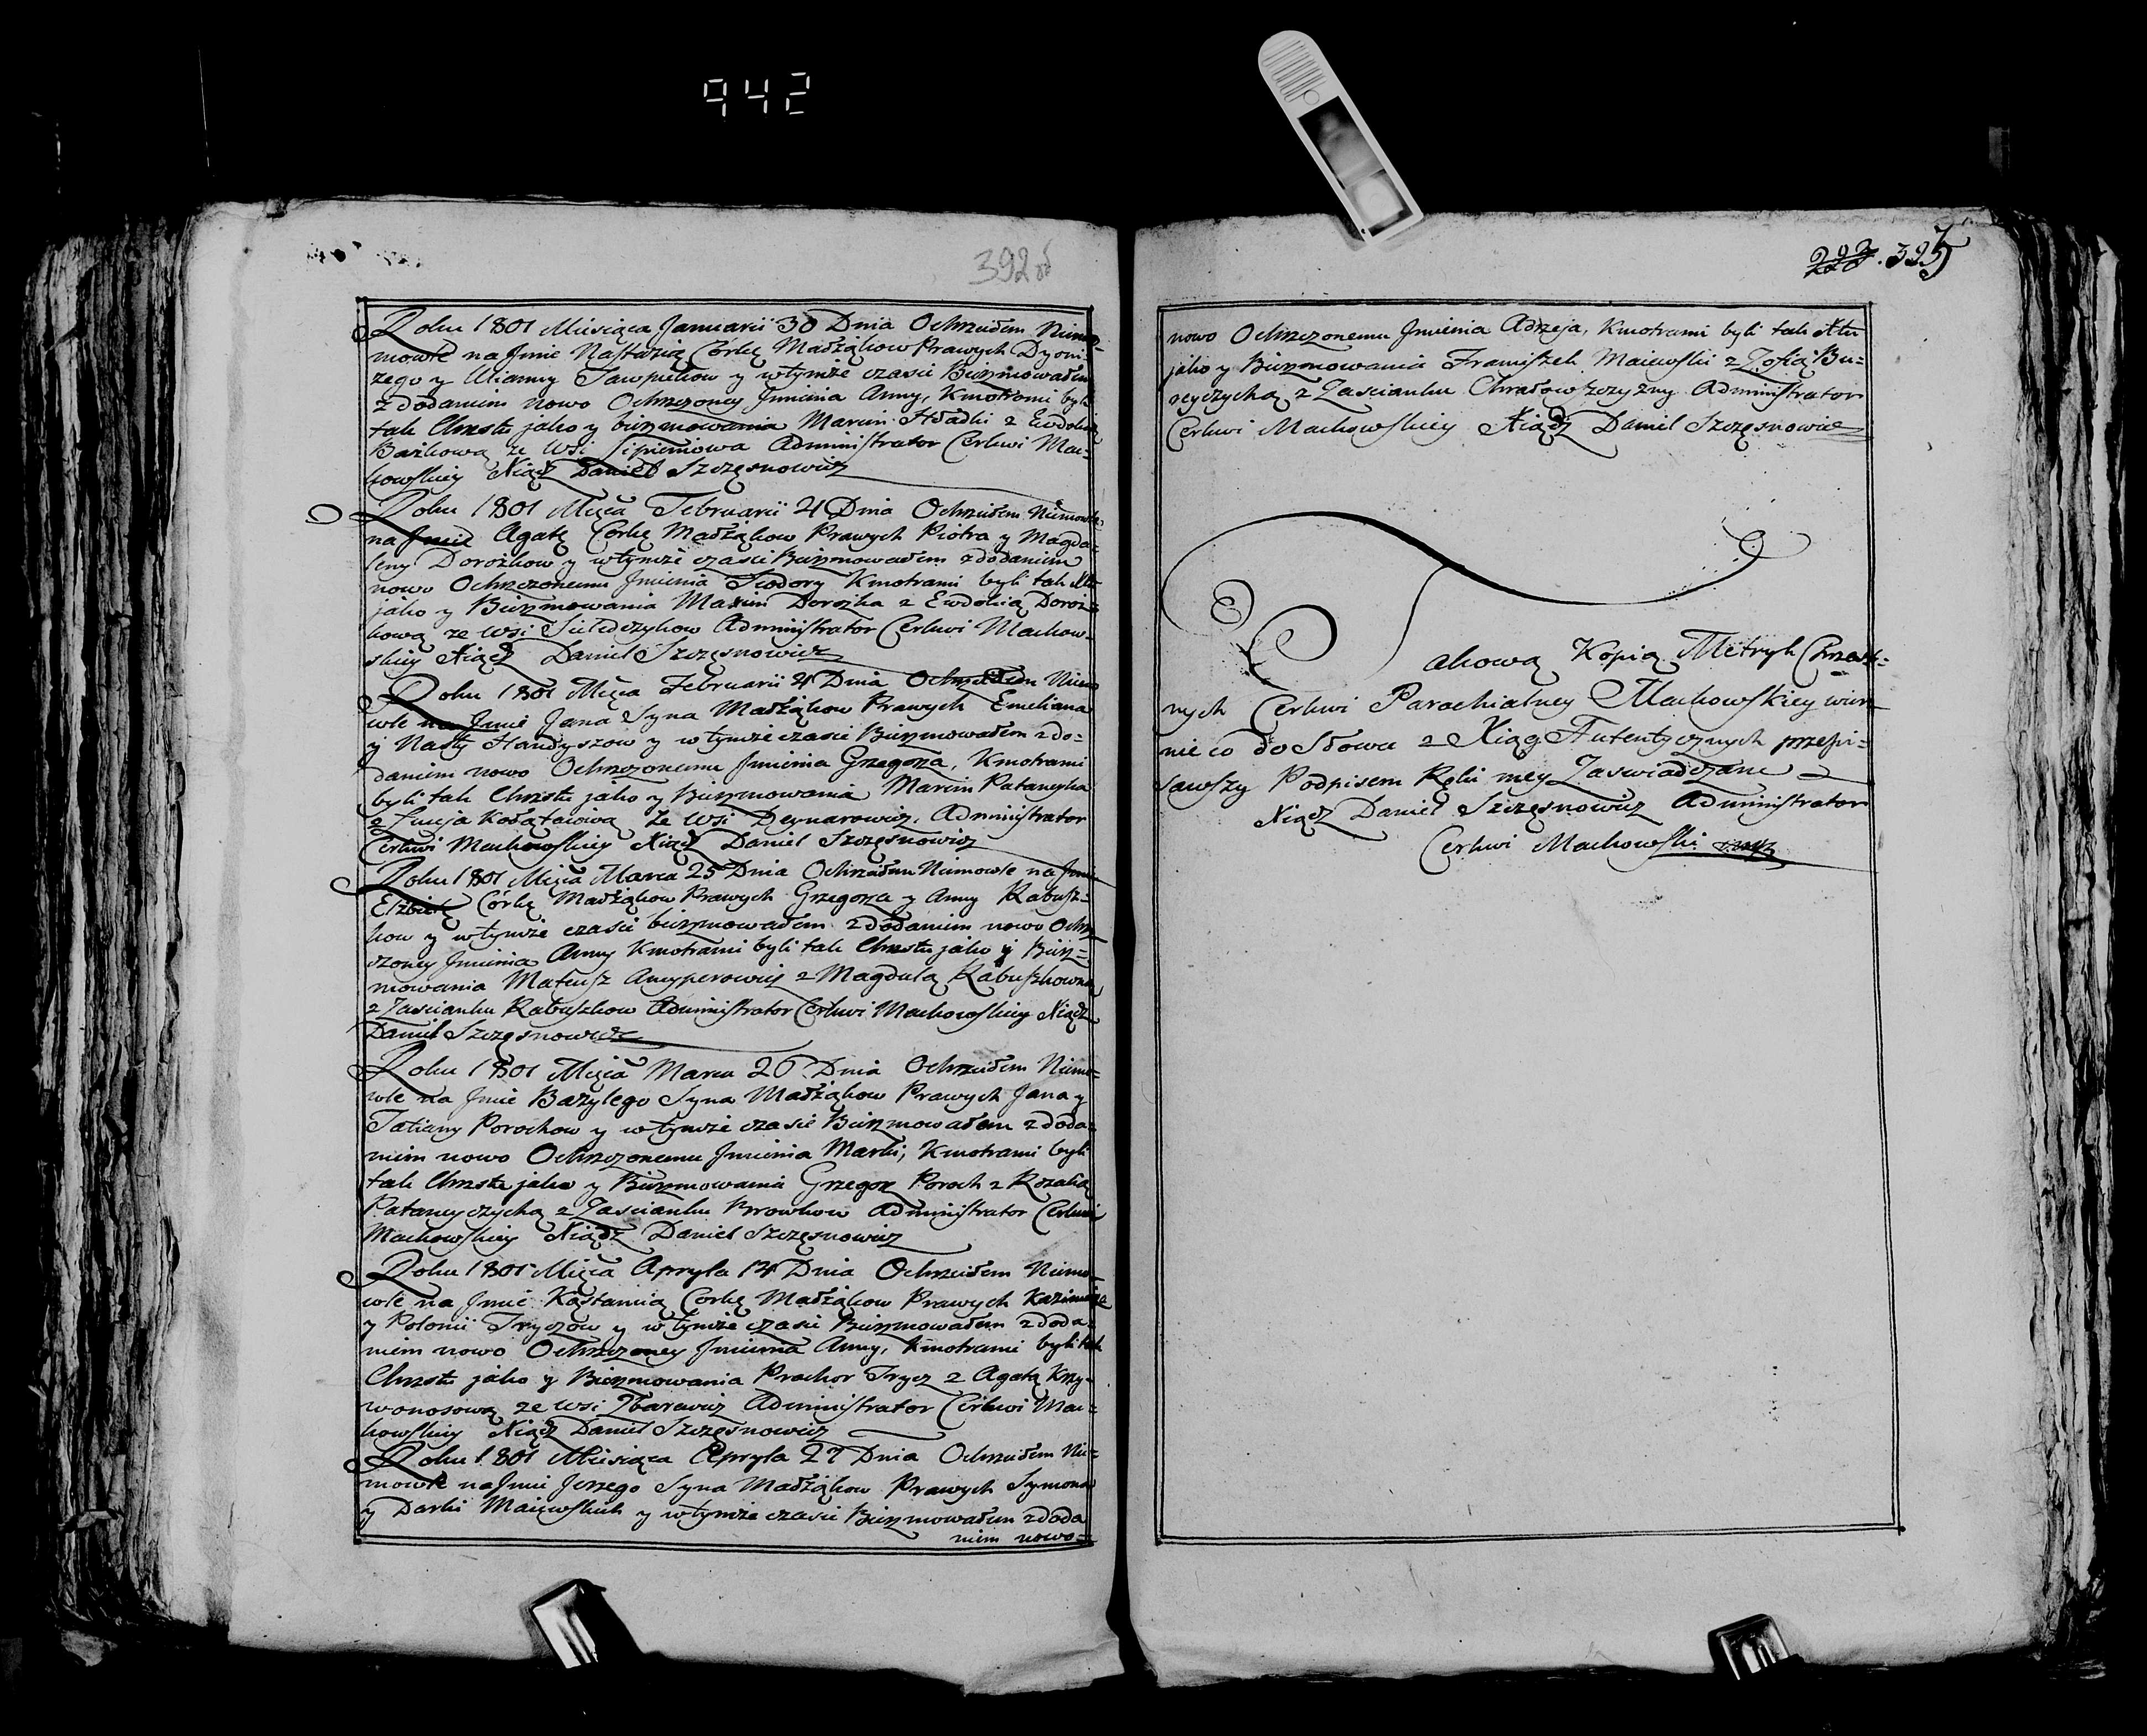 942
392 об
292. 393
Roku 1801 Miesiąca Januarii 30 Dnia Ochrzciłem Niemo-
mowle na Jmie Nastazią Córkę Małżąkow Prawych Dyoni-
zego y Ulianny Sawpiekow y wtymże czasie Bierzmowałem
z dodaniem nowo Ochrzczoney Jmienia Anny, Kmotrami byli
tak Chrztu jako y bierzmowania Marcin Hładki z Ewdokią
Bażkową ze Wsi Administrator Cerkwi Mac-
kowskiey Xiądz Daniel Szczęsnowicz
Roku 1801 Mięcа Februarii 4 Dnia Ochrzciłem Niemowle
na Jmie Agatę Corkę Małżąkow Prawych Piotra y Magda-
leny Dorożkow y wtymże czasie Bierzmowałem z dodaniem
nowo Ochrzczonemu Jmienia Fiodory Kmotrami byli tak Xtu
jako y Bierzmowania Maxim Dorożka z Ewdokią Doroż-
kową ze Wsi Sieledczykow Administrator Cerkwi Machow-
skiey Xiądz Daniel Szczęsnowicz
Roku 1801 Mięca Februarii 4 Dnia Ochrzciłem Niemo
wle na Jmie Jana Syna Małżąkow Prawych Emeliana
y Nasty Handyszow y w tymże czasie Bierzmowałem z do-
daniem nowo Ochrzczonemu Jmienia Grzegorza, Kmotrami
byli tak Chrztu jako y Bierzmowania Marcin Pataneyka
z Łucją Kołątaiową ze Wsi Deynarowicz, Administrator
Cerkwi Machowskiey Xiądz Daniel Szczęsnowicz
Roku 1801 Mięca Marca 25 Dnia Ochrzciłem Niemowle na Jmie
Elżbietę Córkę Małżąkow Prawych Grzegorza y Anny Rabusz-
kow y wtymże czasie bierzmowałem z dodaniem nowo Ochrz
czoney Jmienia Anny Kmotrami byli tak Chrztu jako y Bierz-
mowania Mateusz Ancyperowicz z Magdulą Rabuszkowną
z Zascianku Rabuszkow Administrator Cerkwi Machowskiey Xiądz
Daniel Szczęsnowicz
Roku 1801 Mięca Marca 26 Dnia Ochrzciłem Niemo-
wle na Jmie Bazylego Syna Małżąkow Prawych Jana y
Tatiany Porochow y wtymże czasie Bierzmowałem z doda-
niem nowo Ochrzczonemu Jmienia Marki, Kmotrami byli
tak Chrztu jako y Bierzmowania Grzegorz Poroch z Rozalią
Pataneyczychą z Zascianku Browkow Administrator Cerkwi
Machowskiey Xiądz Daniel Szczęsnowicz
Roku 1801 Mięca Apryla 14 Dnia Ochrzciłem Niemo-
wle na Jmie Kąstancią Corkę Małżąkow Prawych Kazimierza
y Polonii Tryczow y w tymże czasie Bierzmowałem z doda-
niem nowo Ochrzczoney Jmienia Anny, Kmotrami byli tak
Chrztu jako y Bierzmowania Prochor Trycz z Agatą Krzy-
wonosową ze Wsi Żbarewicz Administrator Cerkwi Mac-
kowskiey Xiądz Daniel Szczęsnowicz
Roku 1801 Miesiąca Apryla 27 Dnia Ochrzciłem Nie-
mowle na Jmie Jerzego Syna Małżąkow Prawych Symona
y Darki Maiewskich y wtymże czasie Bierzmowałem z doda
niem nowo-
nowo Ochrzczonemu Jmienia Adrzeja, Kmotrami byli tak Xtu
jako y Bierzmowania Franiszek Maiewski z Zofią Bu-
reyczychą z Zascianku Chrałowszczyzny Administrator
Cerkwi Machowskiey Xiądz Daniel Szczęsnowicz
Takową Kopią Metryk Chrzest-
nych Cerkwi Parochialney Machowskiey wier
nie co do Słowa z Xiąg Autentycznych przepi-
sawszy Podpisem Ręki mey Zaswiadczam
Xiądz Daniel Szczęsnowicz Administrator
Cerkwi Machowski mpr